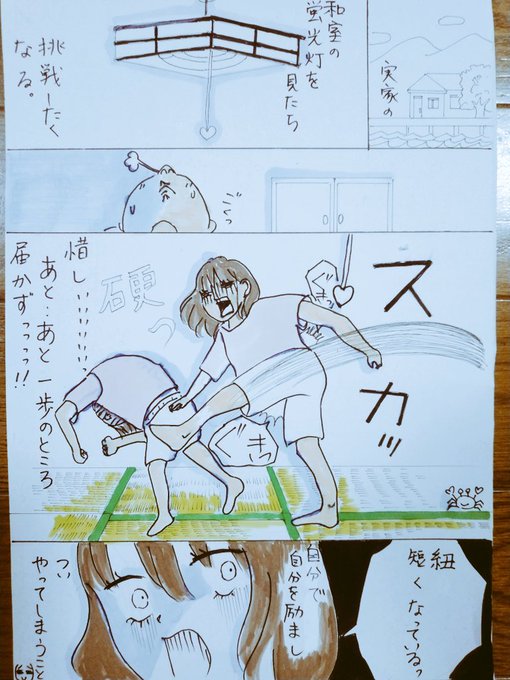 実家の
和室の
蛍光灯を
見たち
挑戦したく
なる。
ごくっ
スカッ
硬っ
ぎっ
惜しいいいいい
あと‥あと一歩のところ
届かずっっっ!!
紐
短くなっているっ
自分で
自分を励まし
つい
やってしまうこと